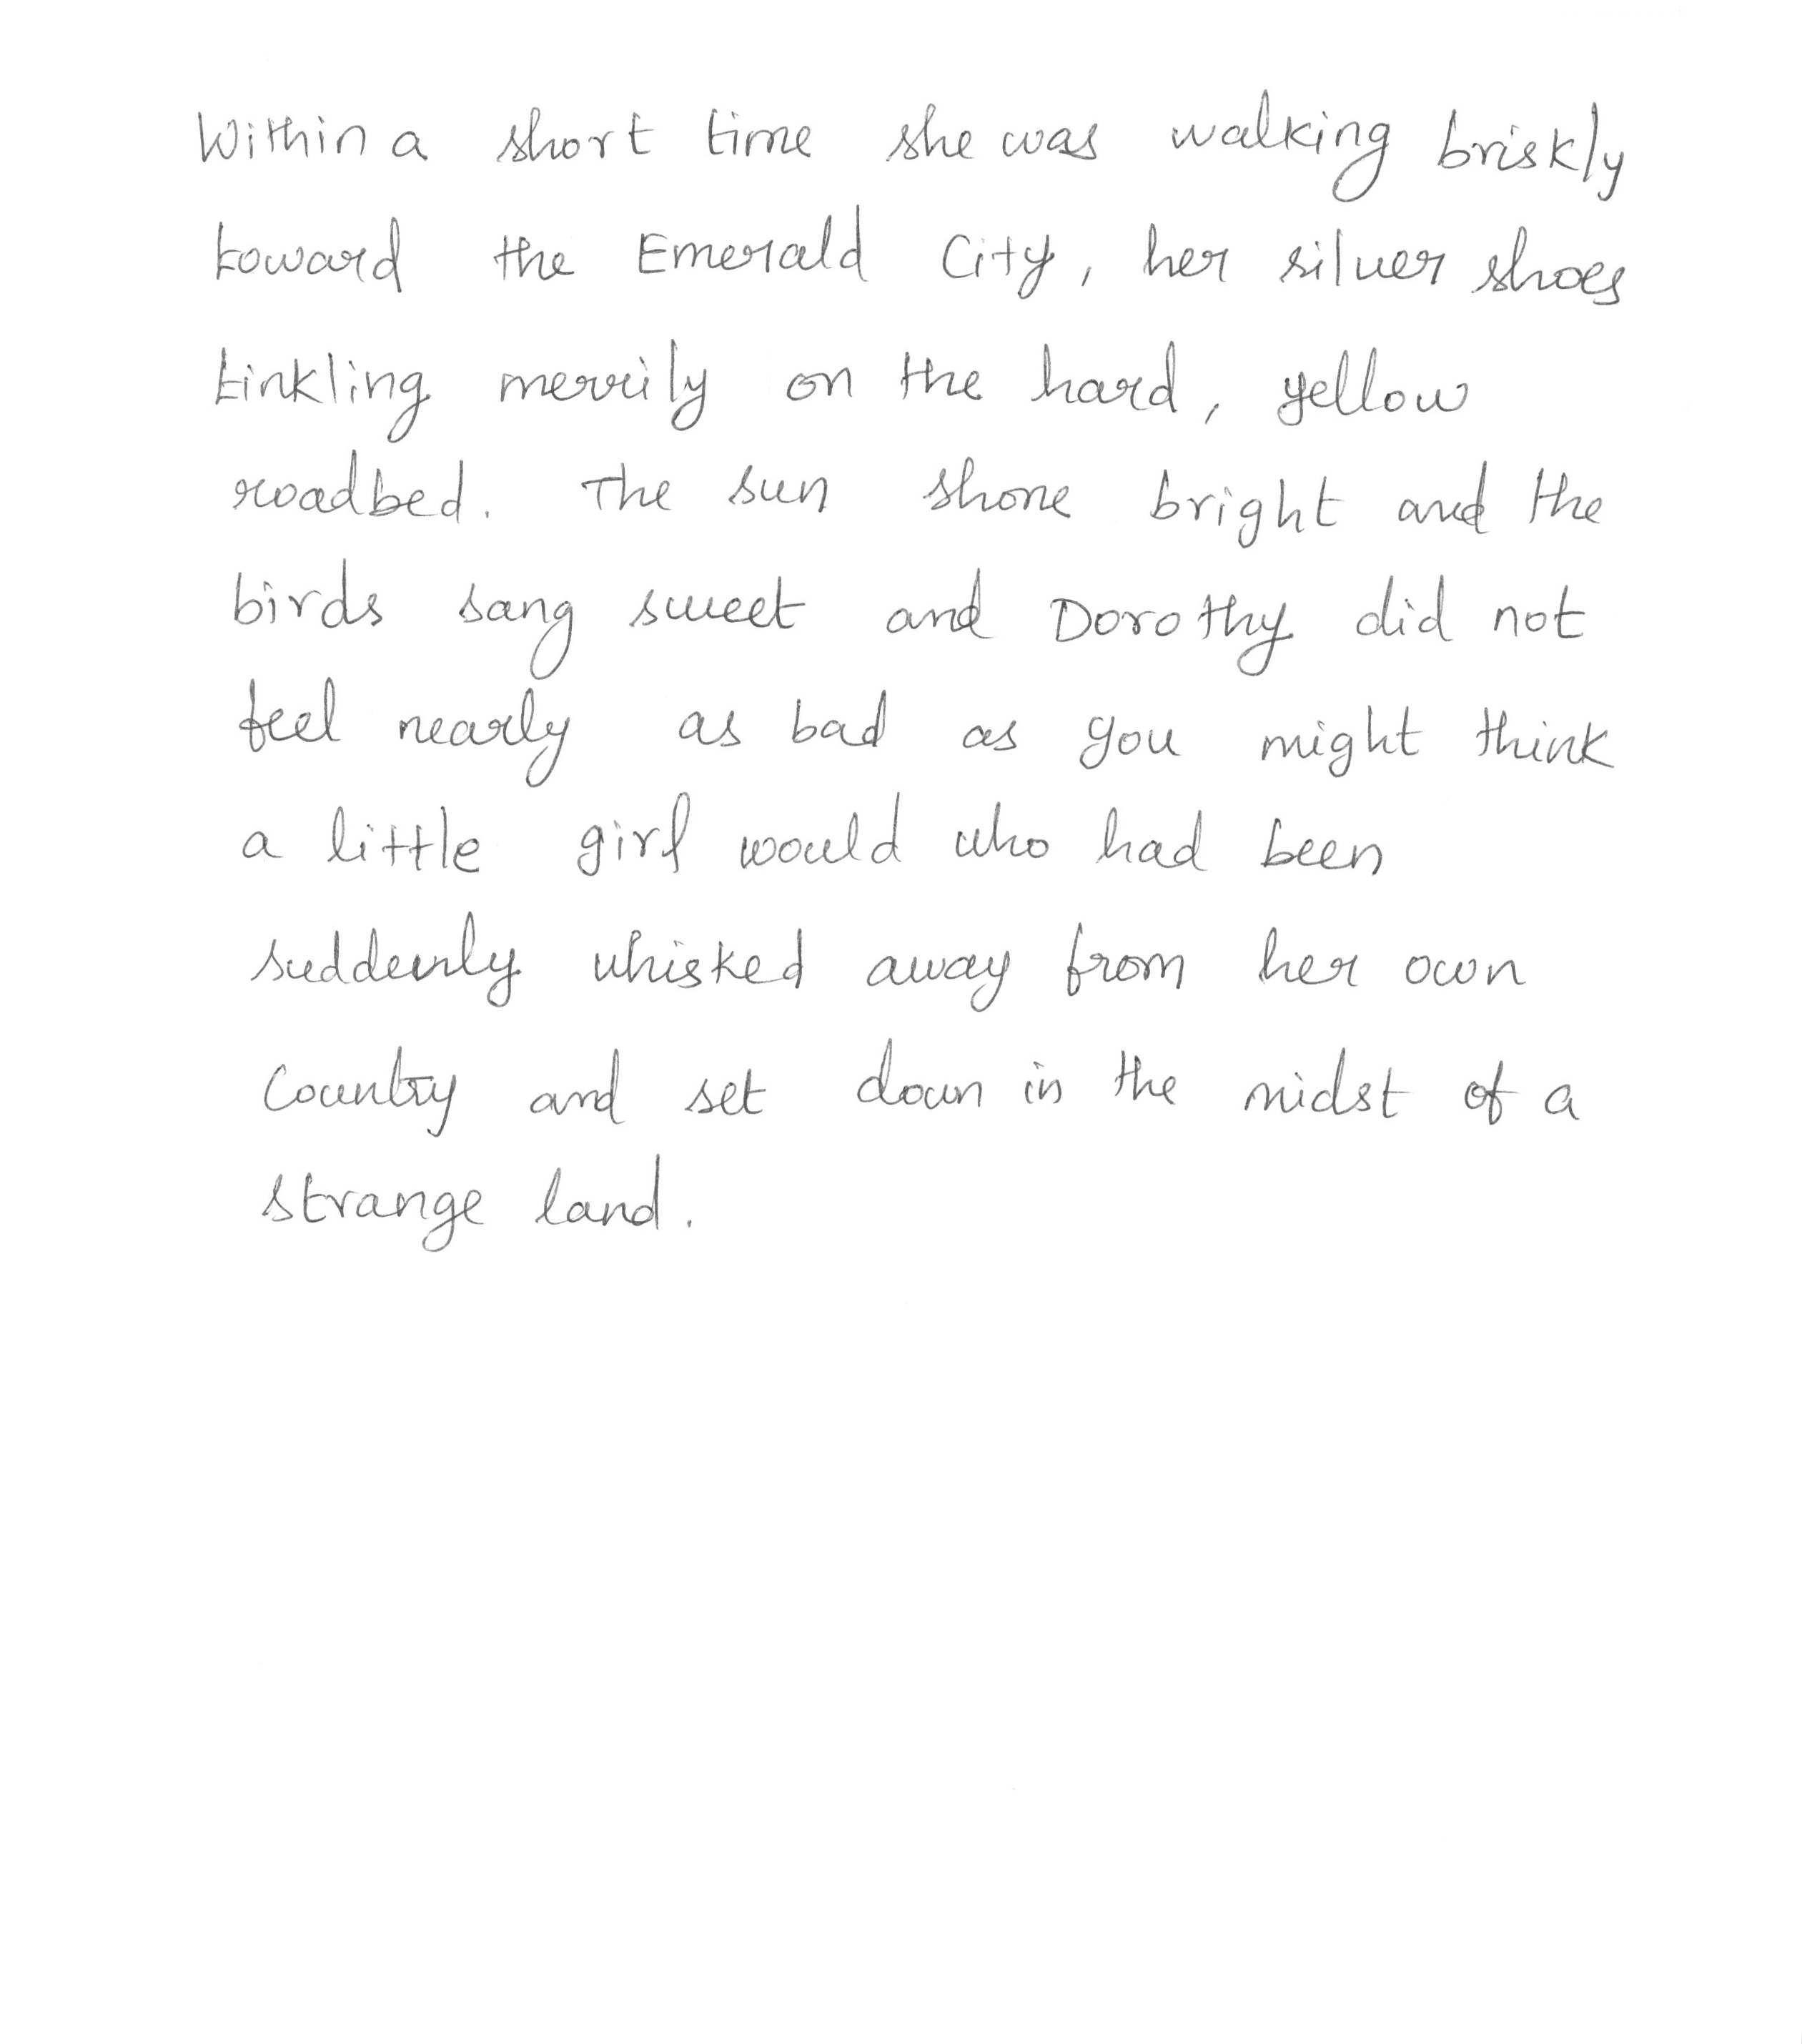 Within a short time she was walking briskly
toward the Emerald City, her silver shoes
tinkling merrily on the hard, yellow
roadbed. The sun shone bright and the
birds sang sweet and Dorothy did not
feel nearly as bad as you might think
a little girl would who had been
suddenly whisked away from her own
country and set down in the midst of a
strange land.